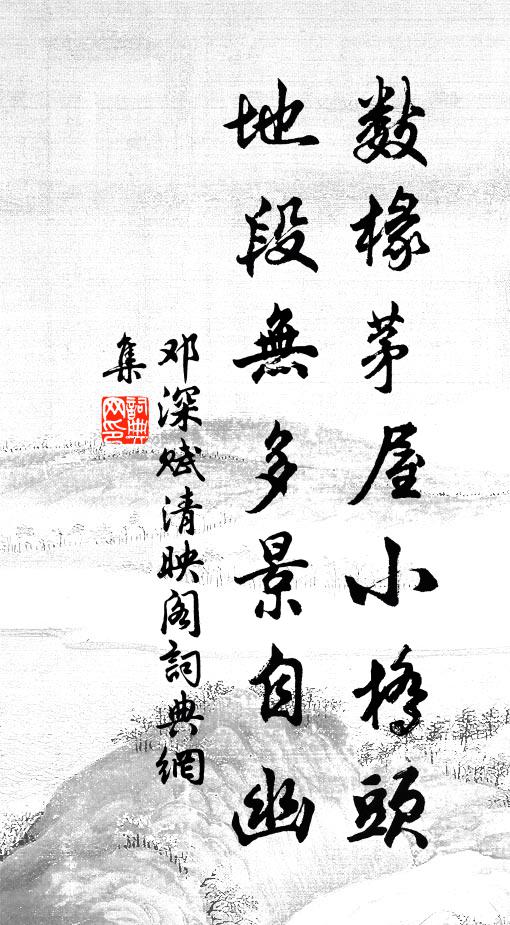 數椽茅屋小橋頭
地段無多景自幽
邓深赋清映阁詞典網
集
詞典網印